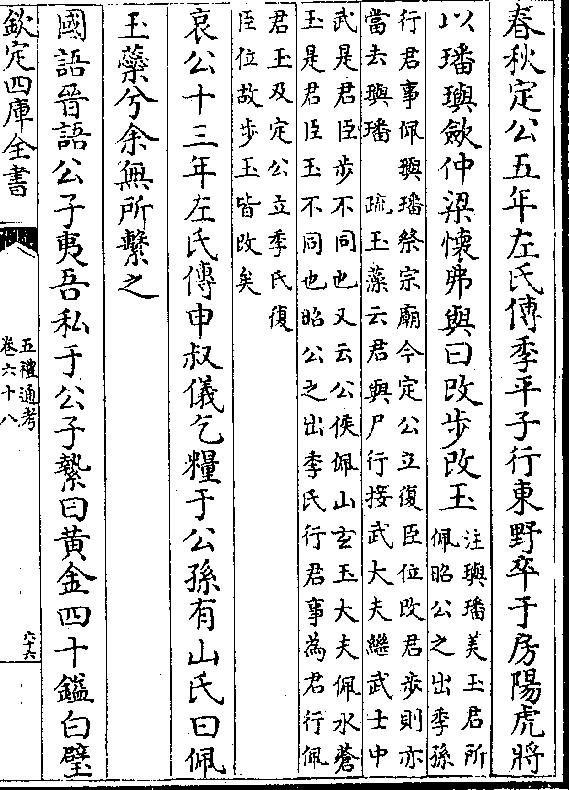 春秋定公五年左氏傳季平子行東野卒于房陽虎將
以璠璵斂仲梁懷弗與曰改步改玉
注璵璠美玉君所
佩昭公之出季孫
行君事佩璵璠祭宗廟今定公立復臣位改君步則亦
當去璵璠 疏玉藻云君與尸行接武大夫繼武士中
武是君臣步不同也又云公侯佩山玄玉大夫佩水蒼
玉是君臣玉不同也昭公之出季氏行君事為君行佩
君玉及定公立季氏復
臣位故步玉皆改矣
哀公十三年左氏傳申叔儀乞糧于公孫有山氏曰佩
玉蘂兮余無所繫之
國語晉語公子夷吾私于公子縶曰黃金四十鎰白璧
欽定四庫全書
五禮通考
卷六十八
六十六